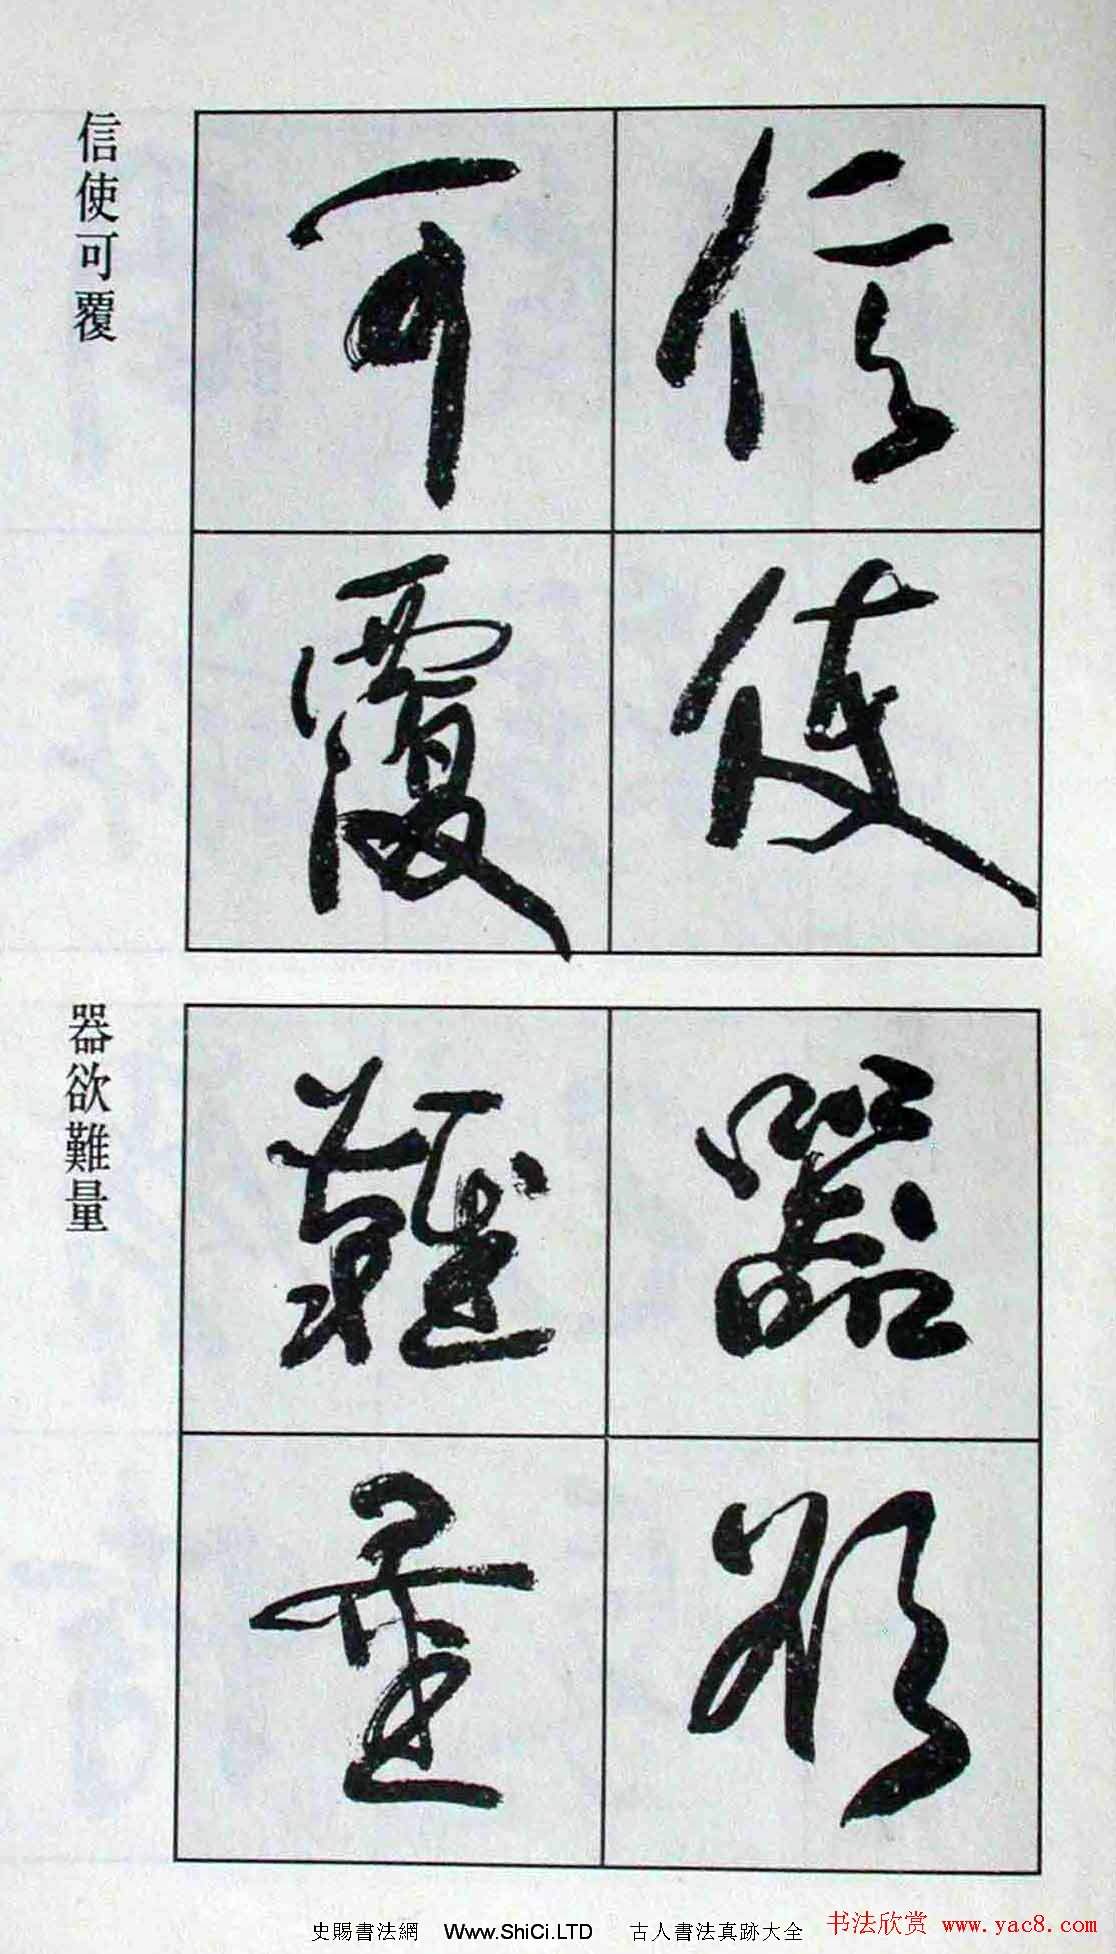 信使可覆
信使
可覆
器欲難量
器欲
難量
史賜書法網 Www.ShiCi.LTD 古人書法真跡大全
书法欣赏 www.yac8.com